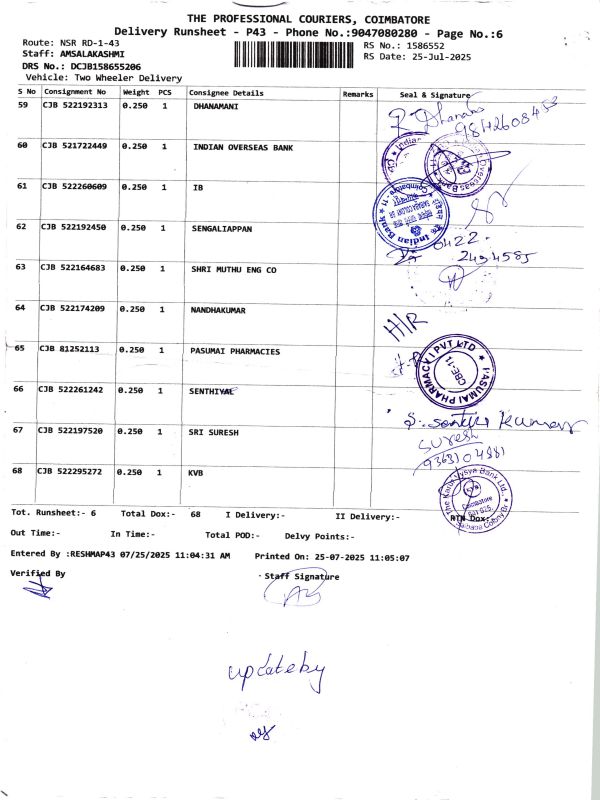 THE PROFESSIONAL COURIERS, COIMBATORE
Delivery Runsheet - P43 - Phone No.:9047080280 - Page No.:6
Route: NSR RD-1-43
RS No.: 1586552
Staff: AMSALAKASHMI
RS Date: 25-Jul-2025
DRS No.: DCJB158655206
Vehicle: Two Wheeler Delivery
S No Consignment No Weight PCS Consignee Details Remarks Seal & Signature
59 CJB 522192313 0.250 1 DHANAMANI
R. Dhanam
9842608453
60 CJB 521722449 0.250 1 INDIAN OVERSEAS BANK
61 CJB 522260609 0.250 1 IB
Indian Bank
62 CJB 522192450 0.250 1 SENGALIAPPAN
0422-
2434585
63 CJB 522164683 0.250 1 SHRI MUTHU ENG CO
64 CJB 522174209 0.250 1 NANDHAKUMAR
H/R
65 CJB 81252113 0.250 1 PASUMAI PHARMACIES
PASUMAI PHARMACY I PVT LTD
CBE-11
66 CJB 522261242 0.250 1 SENTHIYAL
S. Senthil Kumar
67 CJB 522197520 0.250 1 SRI SURESH
Suresh
9363104981
68 CJB 522295272 0.250 1 KVB
The Karur Vysya Bank Ltd.
Coimbatore
Tot. Runsheet:- 6 Total Dox:- 68 I Delivery:- II Delivery:- RTN Dox:-
Out Time:- In Time:- Total POD:- Delvy Points:-
Entered By :RESHMAP43 07/25/2025 11:04:31 AM Printed On: 25-07-2025 11:05:07
Verified By Staff Signature
update by